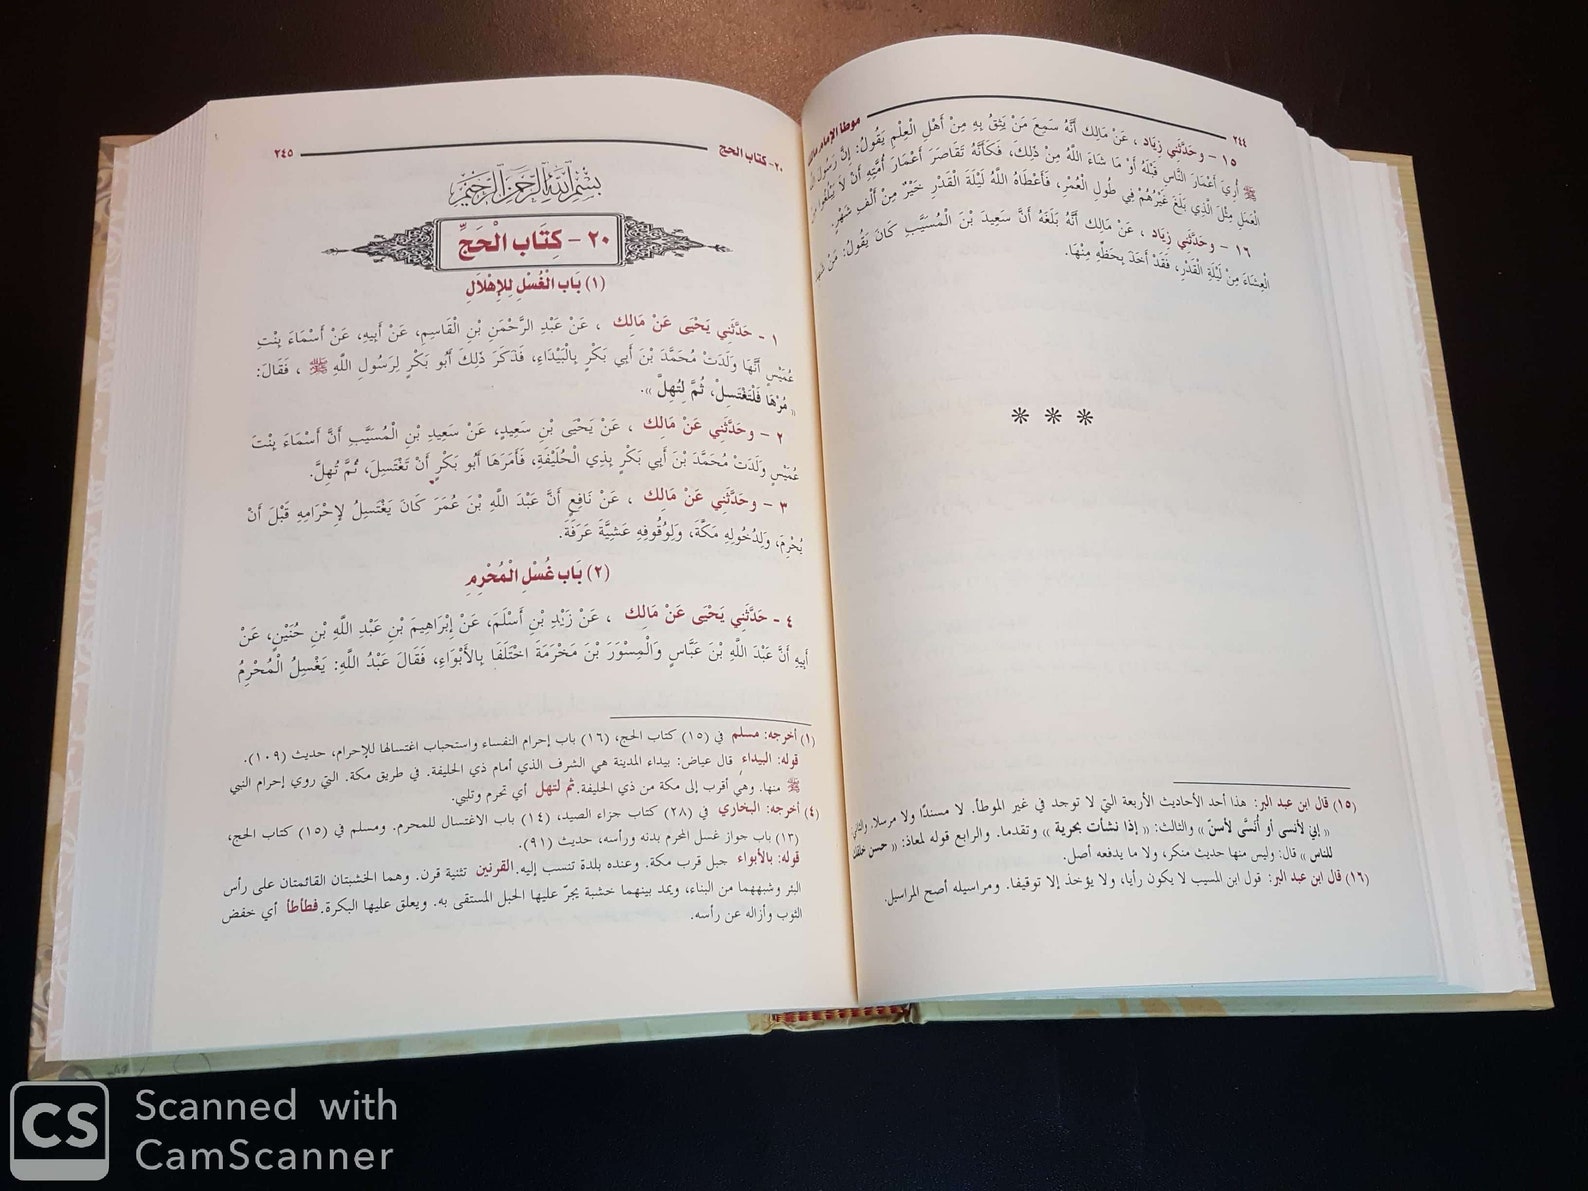 ٢٤٤
موطأ الإمام
١٥ - وحَدَّثَنِي زِيَاد ، عَنْ مَالِك أَنَّهُ سَمِعَ مَنْ يَثِقُ بِهِ مِنْ أَهْلِ الْعِلْمِ يَقُولُ: إِنَّ رَسُولَ
ﷺ أُرِيَ أَعْمَارَ النَّاسِ قَبْلَهُ أَوْ مَا شَاءَ اللَّهُ مِنْ ذٰلِكَ، فَكَأَنَّهُ تَقَاصَرَ أَعْمَارَ أُمَّتِهِ أَنْ لاَ يَبْلُغُوا مِنَ
الْعَمَلِ مِثْلَ الَّذِي بَلَغَ غَيْرُهُمْ فِي طُولِ الْعُمْرِ، فَأَعْطَاهُ اللَّهُ لَيْلَةَ الْقَدْرِ خَيْرٌ مِنْ أَلْفِ شَهْرٍ.
١٦ - وحَدَّثَنِي زِيَاد ، عَنْ مَالِك أَنَّهُ بَلَغَهُ أَنَّ سَعِيدَ بْنَ الْمُسَيَّبِ كَانَ يَقُولُ: مَنْ شَهِدَ
الْعِشَاءَ مِنْ لَيْلَةِ الْقَدْرِ، فَقَدْ أَخَذَ بِحَظِّهِ مِنْهَا.
* * *
(١٥) قال ابن عبد البر: هذا أحد الأحاديث الأربعة التي لا توجد في غير الموطأ. لا مسندًا ولا مرسلا. والثاني
« إني لأنسى أو أُنسَّى لأسنّ » والثالث: « إذا نشأت بحرية » وتقدما. والرابع قوله لمعاذ: « حسن خلقك
للناس » قال: وليس منها حديث منكر، ولا ما يدفعه أصل.
(١٦) قال ابن عبد البر: قول ابن المسيب لا يكون رأيا، ولا يؤخذ إلا توقيفا. ومراسيله أصح المراسيل.
٢٠- كتاب الحج
٢٤٥
بسم الله الرحمن الرحيم
٢٠ - كِتَاب الْحَجِّ
(١) بَاب الْغُسْلِ لِلإِهْلَالِ
١ - حَدَّثَنِي يَحْيَى عَنْ مَالِك ، عَنْ عَبْدِ الرَّحْمَنِ بْنِ الْقَاسِمِ، عَنْ أَبِيهِ، عَنْ أَسْمَاءَ بِنْتِ
عُمَيْسٍ أَنَّهَا وَلَدَتْ مُحَمَّدَ بْنَ أَبِي بَكْرٍ بِالْبَيْدَاءِ، فَذَكَرَ ذَلِكَ أَبُو بَكْرٍ لِرَسُولِ اللَّهِ ﷺ ، فَقَالَ:
« مُرْهَا فَلْتَغْتَسِلْ، ثُمَّ لِتُهِلَّ ».
٢ - وحَدَّثَنِي عَنْ مَالِك ، عَنْ يَحْيَى بْنِ سَعِيدٍ، عَنْ سَعِيدِ بْنِ الْمُسَيَّبِ أَنَّ أَسْمَاءَ بِنْتَ
عُمَيْسٍ وَلَدَتْ مُحَمَّدَ بْنَ أَبِي بَكْرٍ بِذِي الْحُلَيْفَةِ، فَأَمَرَهَا أَبُو بَكْرٍ أَنْ تَغْتَسِلَ، ثُمَّ تُهِلَّ.
٣ - وحَدَّثَنِي عَنْ مَالِك ، عَنْ نَافِعٍ أَنَّ عَبْدَ اللَّهِ بْنَ عُمَرَ كَانَ يَغْتَسِلُ لإِحْرَامِهِ قَبْلَ أَنْ
يُحْرِمَ، وَلِدُخُولِهِ مَكَّةَ، وَلِوُقُوفِهِ عَشِيَّةَ عَرَفَةَ.
(٢) بَاب غُسْلِ الْمُحْرِمِ
٤ - حَدَّثَنِي يَحْيَى عَنْ مَالِك ، عَنْ زَيْدِ بْنِ أَسْلَمَ، عَنْ إِبْرَاهِيمَ بْنِ عَبْدِ اللَّهِ بْنِ حُنَيْنٍ، عَنْ
أَبِيهِ أَنَّ عَبْدَ اللَّهِ بْنَ عَبَّاسٍ وَالْمِسْوَرَ بْنَ مَخْرَمَةَ اخْتَلَفَا بِالأَبْوَاءِ، فَقَالَ عَبْدُ اللَّهِ: يَغْسِلُ الْمُحْرِمُ
(١) أخرجه: مسلم في (١٥) كتاب الحج، (١٦) باب إحرام النفساء واستحباب اغتسالها للإحرام، حديث (١٠٩).
قوله: البيداء قال عياض: بيداء المدينة هي الشرف الذي أمام ذي الحليفة. في طريق مكة. التي روي إحرام النبي
ﷺ منها. وهي أقرب إلى مكة من ذي الحليفة. ثم لتهل أي تحرم وتلبي.
(٤) أخرجه: البخاري في (٢٨) كتاب جزاء الصيد، (١٤) باب الاغتسال للمحرم. ومسلم في (١٥) كتاب الحج،
(١٣) باب جواز غسل المحرم بدنه ورأسه، حديث (٩١).
قوله: بالأبواء جبل قرب مكة. وعنده بلدة تنسب إليه. القرنين تثنية قرن. وهما الخشبتان القائمتان على رأس
البئر وشبههما من البناء، ويمد بينهما خشبة يجرّ عليها الحبل المستقى به. ويعلق عليها البكرة. فطأطأ أي خفض
الثوب وأزاله عن رأسه.
CS
Scanned with
CamScanner